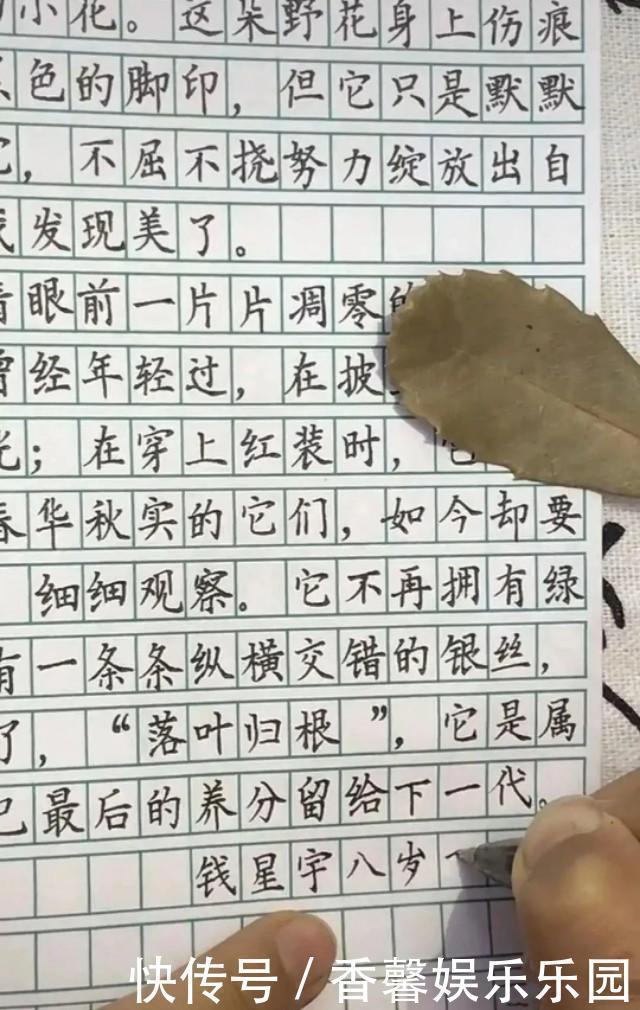 小花。这朵野花身上伤痕
色的脚印，但它只是默默
，不屈不挠努力绽放出自
发现美了。
眼前一片片凋零的
曾经年轻过，在披
光；在穿上红装时，它
春华秋实的它们，如今却要
细细观察。它不再拥有绿
有一条条纵横交错的银丝，
了，“落叶归根”，它是属
己最后的养分留给下一代。
钱星宇八岁
快传号/香馨娱乐乐园